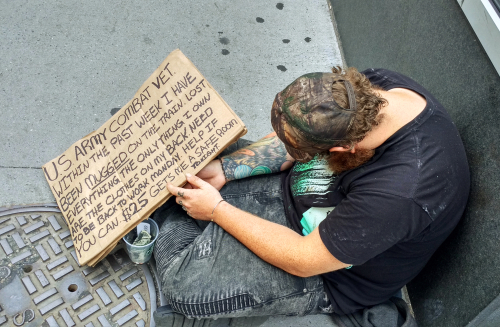 US ARMY COMBAT VET.
WITHIN THE PAST WEEK I HAVE
BEEN MUGGED ON THE TRAIN. LOST
EVERYTHING THE ONLY THINGS I OWN
ARE THE CLOTHES ON MY BACK NEED
TO BE BACK TO WORK MONDAY HELP IF
YOU CAN $25 GETS ME A SAFE ROOM
TONIGHT